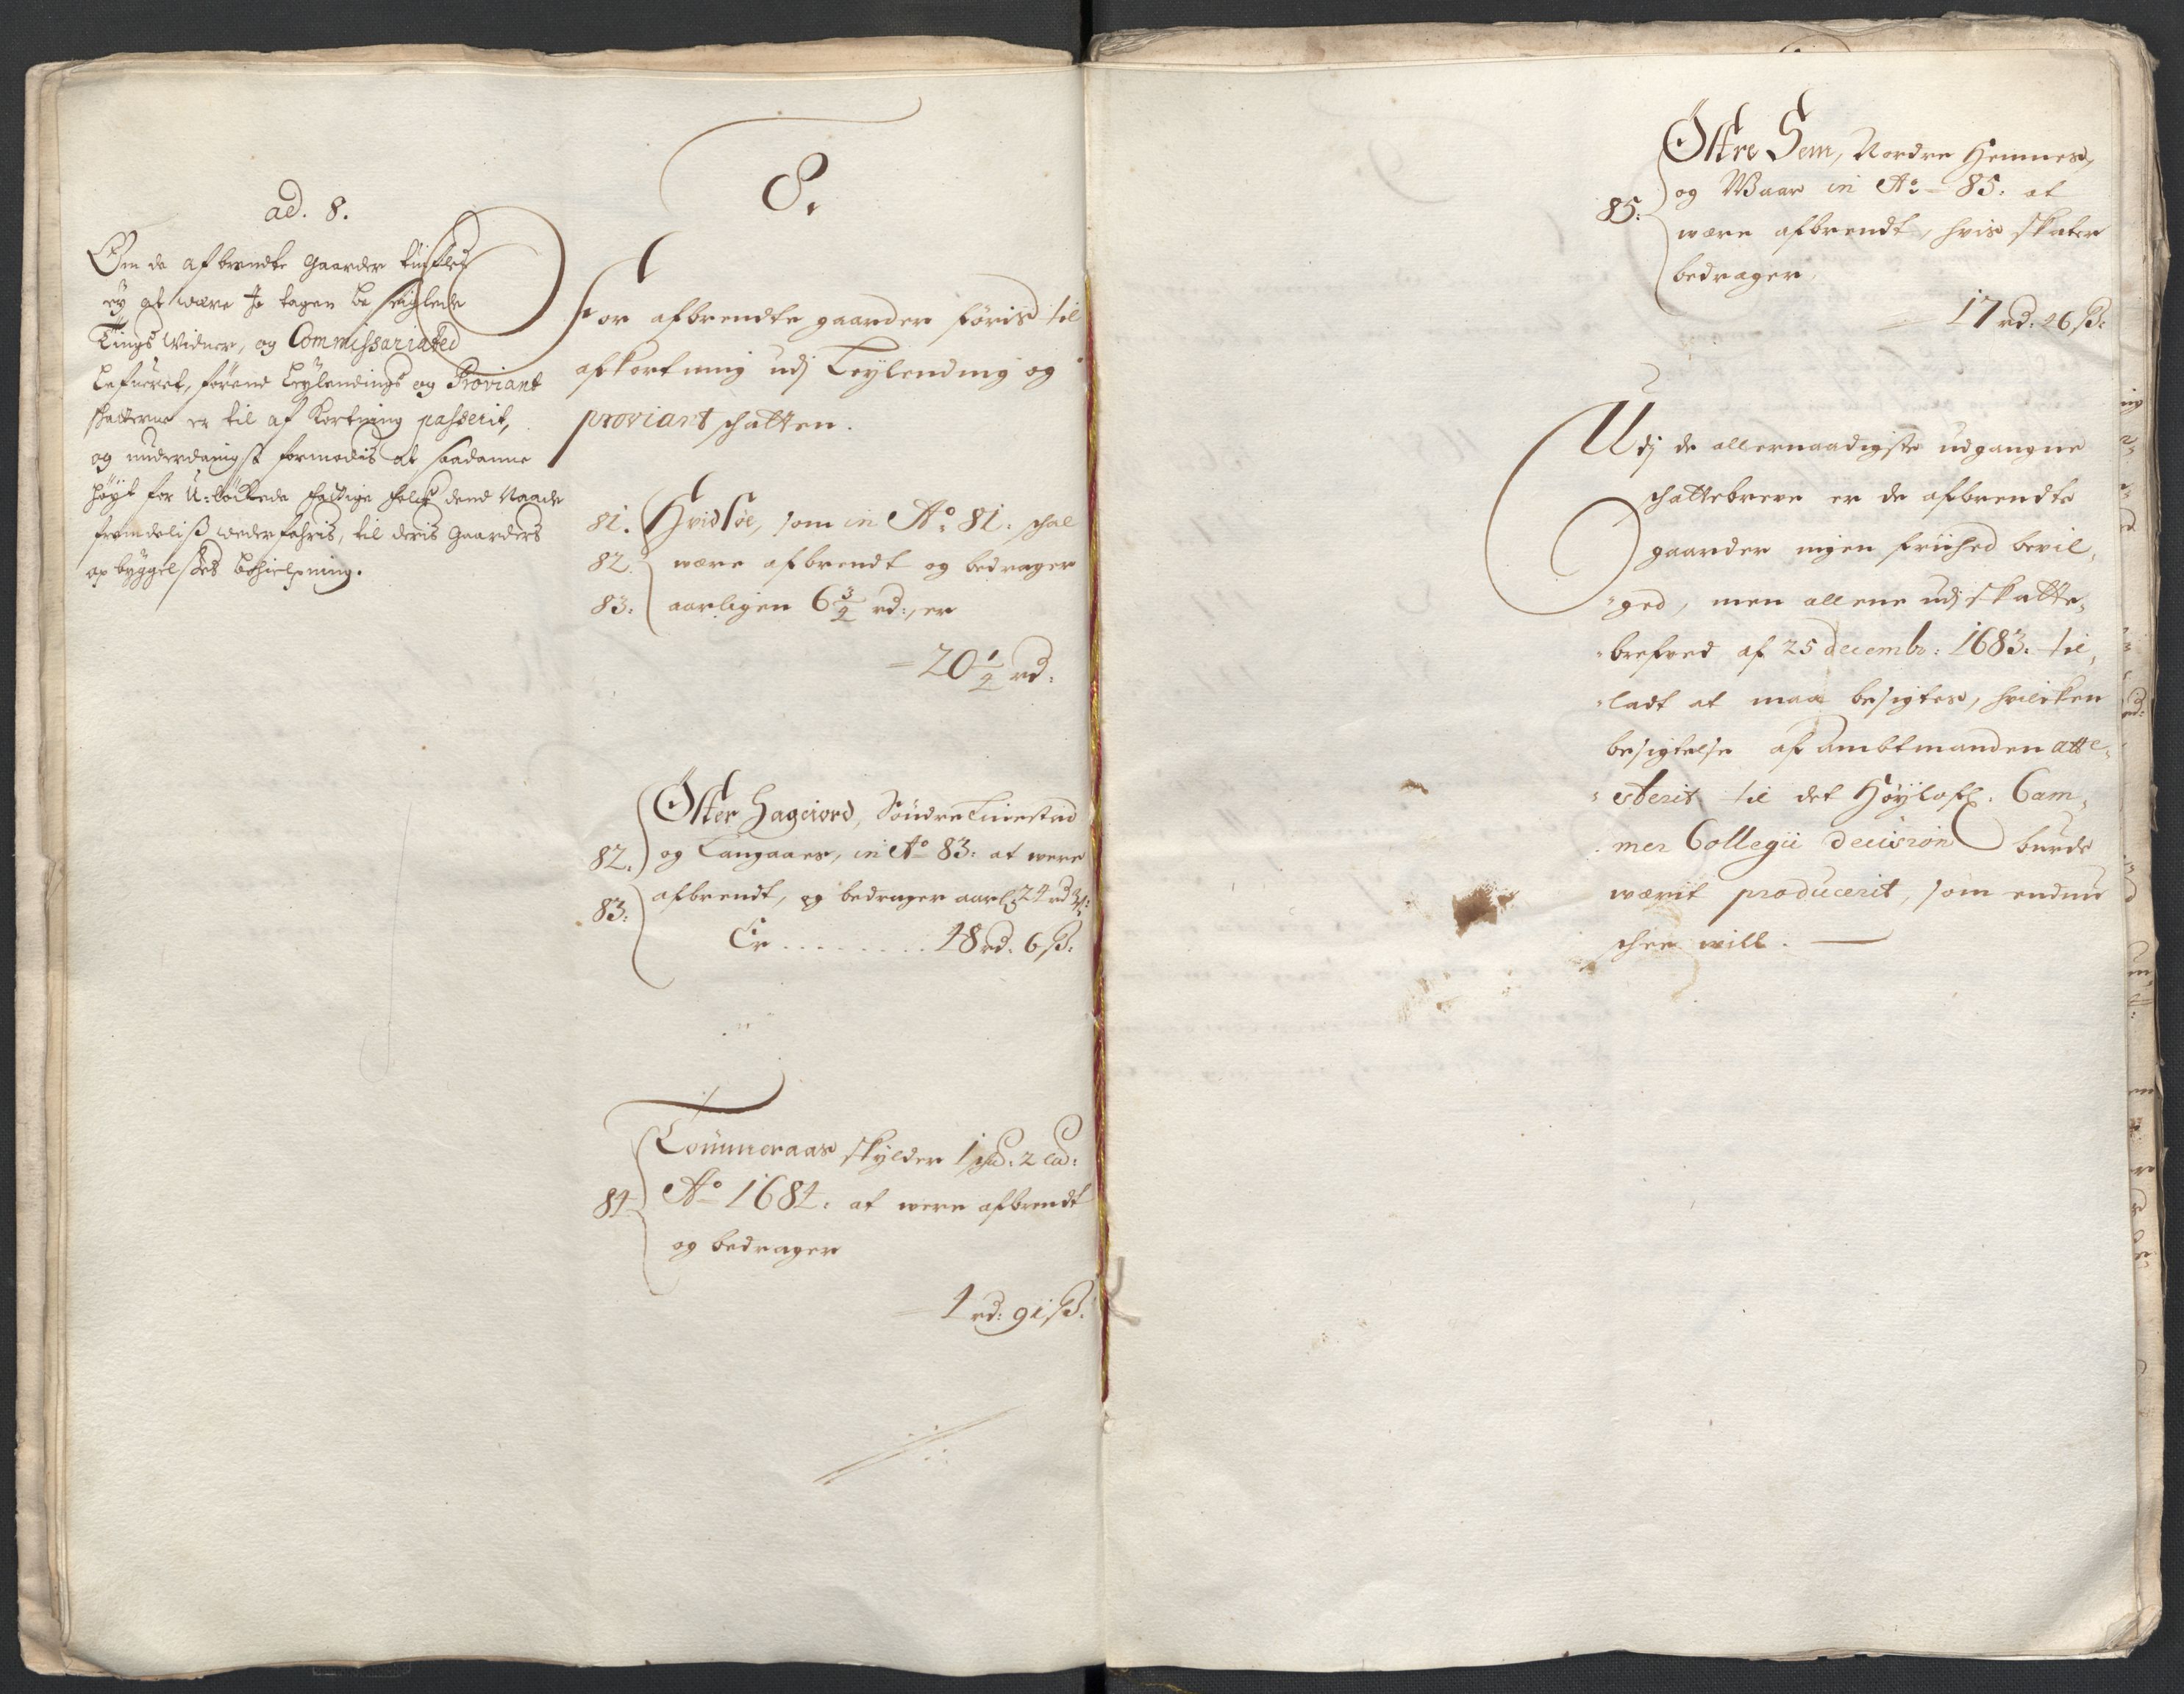 ad. 8.
Om de afbrendte Gaarder tuifles
ey at være Jo tagen beseiglede
Tings Widner, og Commissariated
lefueret, forend Leylendings og Proviant
schatterne er til af Kortning passerit,
og underdanigst formodis at saadanne
høyt for U-löckede fattige folch dend Naade
fremdeliss vederfahris, til deris Gaarders
op byggelsses behielpning.
8.
For afbrendte gaarder føris til
afkortning udj Leylending og
proviant schatten.
81. Hvidsøe, som in Ao: 81: schal
82. være afbrendt og bedrager
83: aarligen 6 3/2 rd:, er
= 20 1/2 rd:
Øster Hageiord, Søndre Linnestad
82. og Langaaes, in Ao 83: at were
afbrendt, og bedrager aarl: 24 rd 3 ß:
83: Er . . . . . . . . 48 rd: 6 ß:
Tømmeraas skylder 1 schd: 2 ld:
84 Ao 1684: at were afbrendt
og bedrager
4 rd: 91 ß:
Østre Sem, Nordre Hemnes,
og Waar in Ao 85: at
85: være afbrendt, hvis skater
bedrager
17 rd: 26 ß:
Udj de allernaadigste udgangne
schattebreve er de afbrendte
gaarder ingen friihed bevil,
"ged, men allene udj skatte,
"brefved af 25 decembr: 1683: til,
"ladt at maa besigtes, hvilcken
besigtelse af Ambtmanden atte,
"sterit til det Høylofl: Cam,
"mer Collegii decision burde
værit producerit, som endnu
schee will.